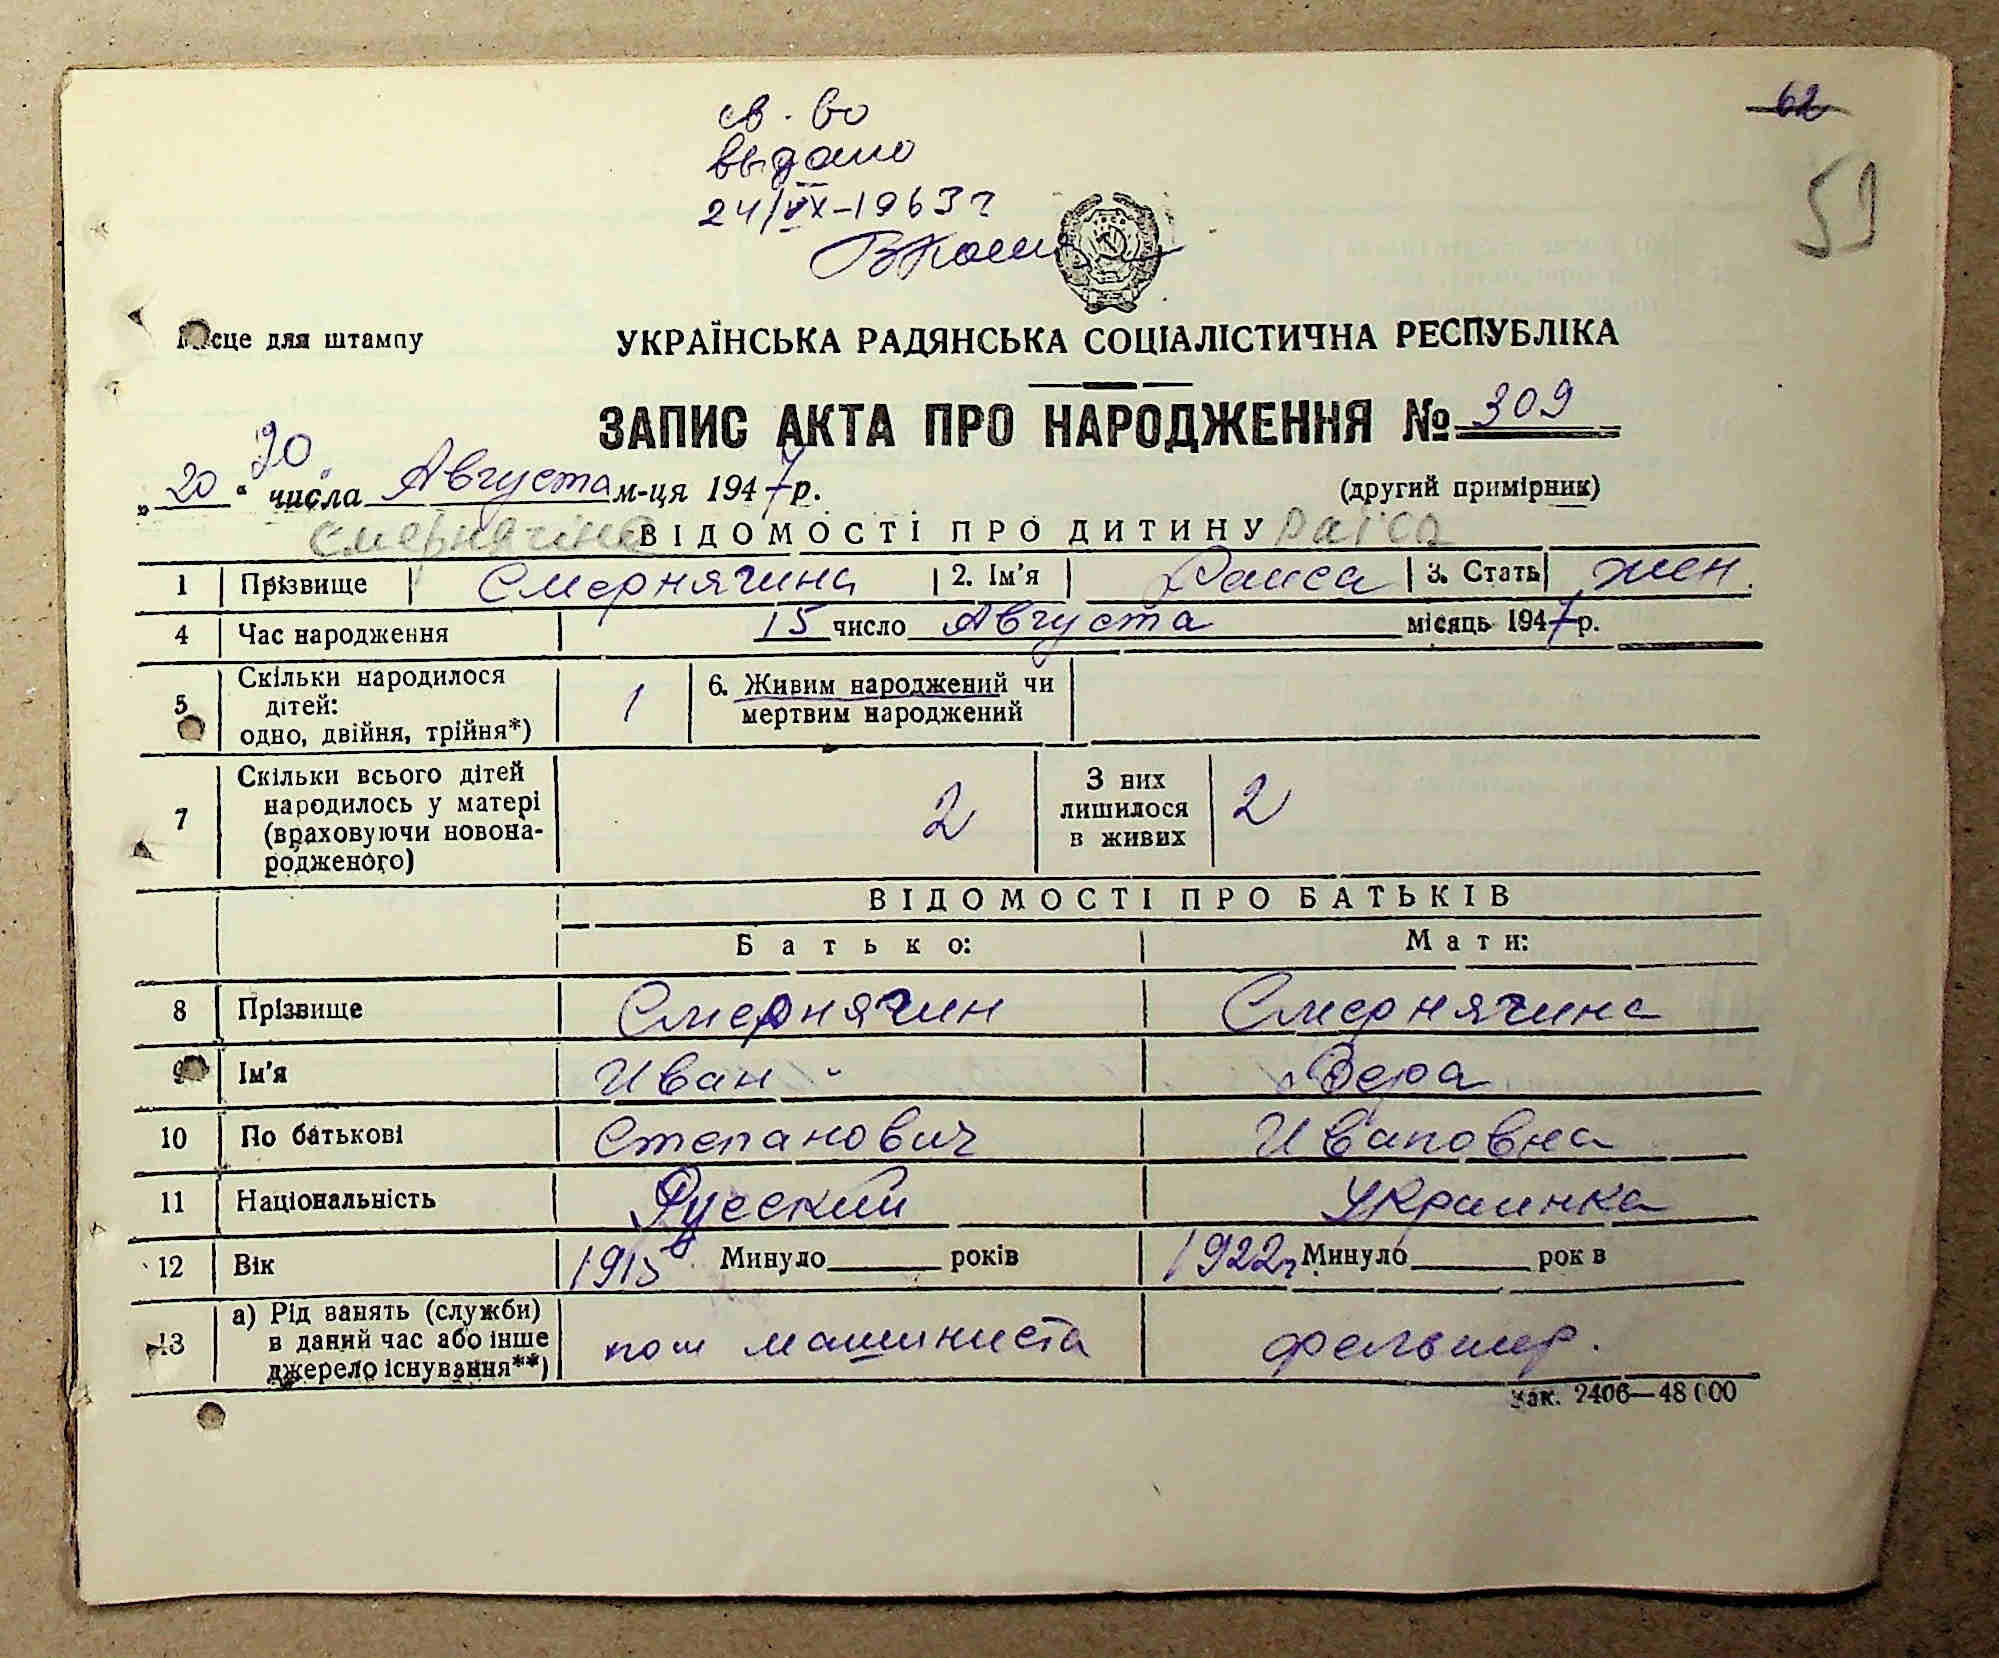 св-во
выдано
24/IX-1963 г
62
59
Місце для штампу
УКРАЇНСЬКА РАДЯНСЬКА СОЦІАЛІСТИЧНА РЕСПУБЛІКА
ЗАПИС АКТА ПРО НАРОДЖЕННЯ № 309
20
„20“ числа Августа м-ця 1947 р.
(другий примірник)
Смернячіна ВІДОМОСТІ ПРО ДИТИНУ Раїса
1 Прізвище Смернячина 2. Ім'я Раиса 3. Стать жен.
4 Час народження 15 число Августа місяць 1947 р.
5 Скільки народилося дітей: одно, двійня, трійня*) 1 6. Живим народжений чи мертвим народжений
7 Скільки всього дітей народилось у матері (враховуючи новонародженого) 2 З них лишилося в живих 2
ВІДОМОСТІ ПРО БАТЬКІВ
Батько: Мати:
8 Прізвище Смернячин Смернячина
9 Ім'я Иван Вера
10 По батькові Степанович Ивановна
11 Національність Русский Украинка
12 Вік 1915 Минуло років 1922 г. Минуло рок в
13 а) Рід занять (служби) в даний час або інше джерело існування**) пом машиниста фельшер.
Зак. 2406—48000